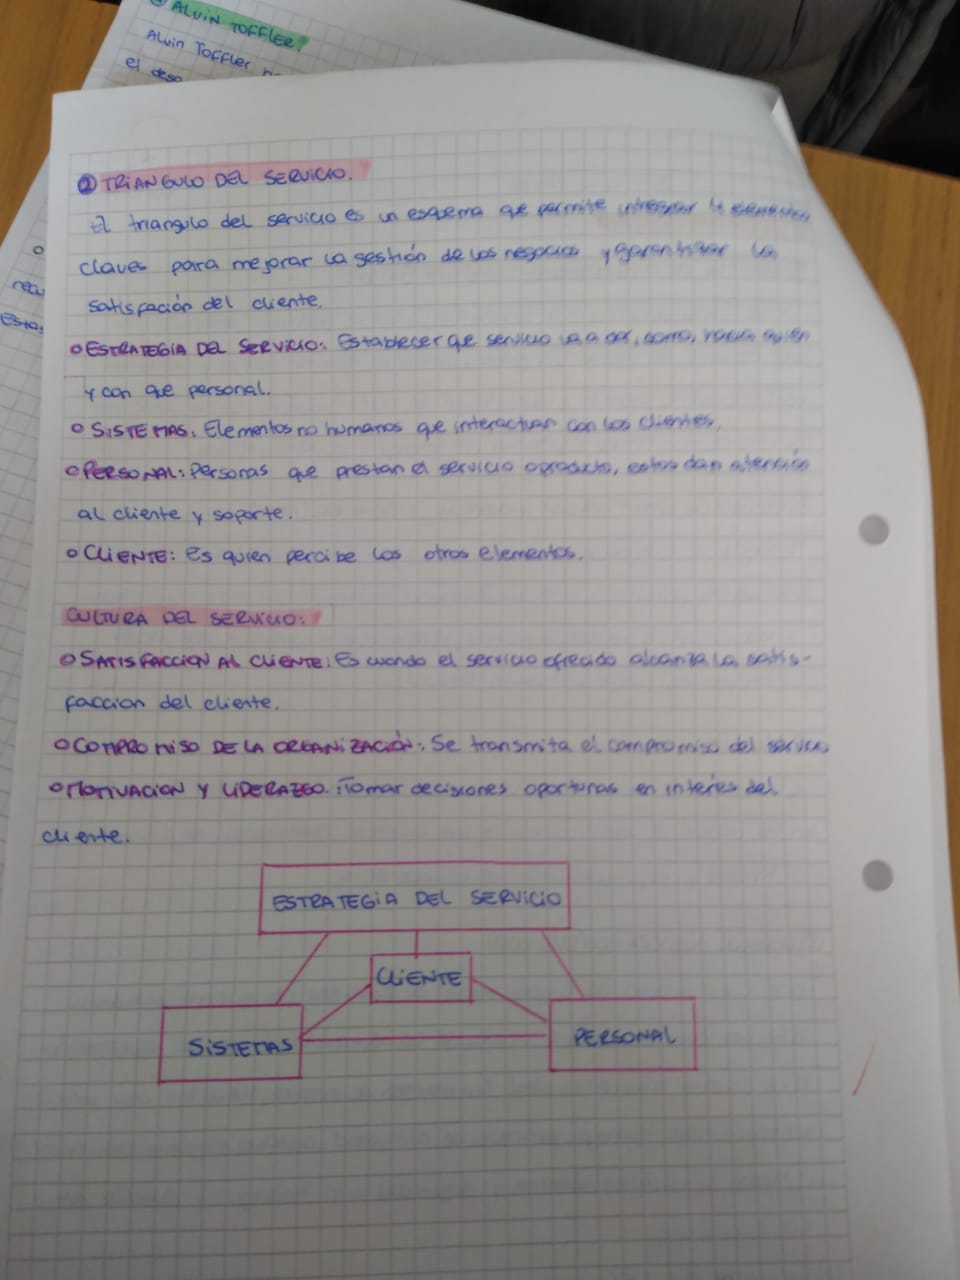 ALVIN TOFFLER.
Alvin Toffler
el
② TRIANGULO DEL SERVICIO.
El triangulo del servicio es un esquema que permite integrar 4 elementos
claves para mejorar la gestión de los negocios y garantizar la
satisfación del cliente.
o ESTRATEGIA DEL SERVICIO: Establecer qe servicio va a dar, como, hacia quien
y con que personal.
o SISTEMAS: Elementos no humanos que interactuan con los clientes.
o PERSONAL: Personas que prestan el servicio o producto, estos dan atención
al cliente y soporte.
o CLIENTE: Es quien percibe los otros elementos.
CULTURA DEL SERVICIO:
o SATISFACCION AL CLIENTE: Es cuando el servicio ofrecido alcanza la satis-
faccion del cliente.
o COMPROMISO DE LA ORGANIZACIÓN: Se transmita el compromiso del servicio
o MOTIVACION Y LIDERAZGO: Tomar decisiones oportunas en interés del
cliente.
ESTRATEGIA DEL SERVICIO
CLIENTE
SISTEMAS
PERSONAL